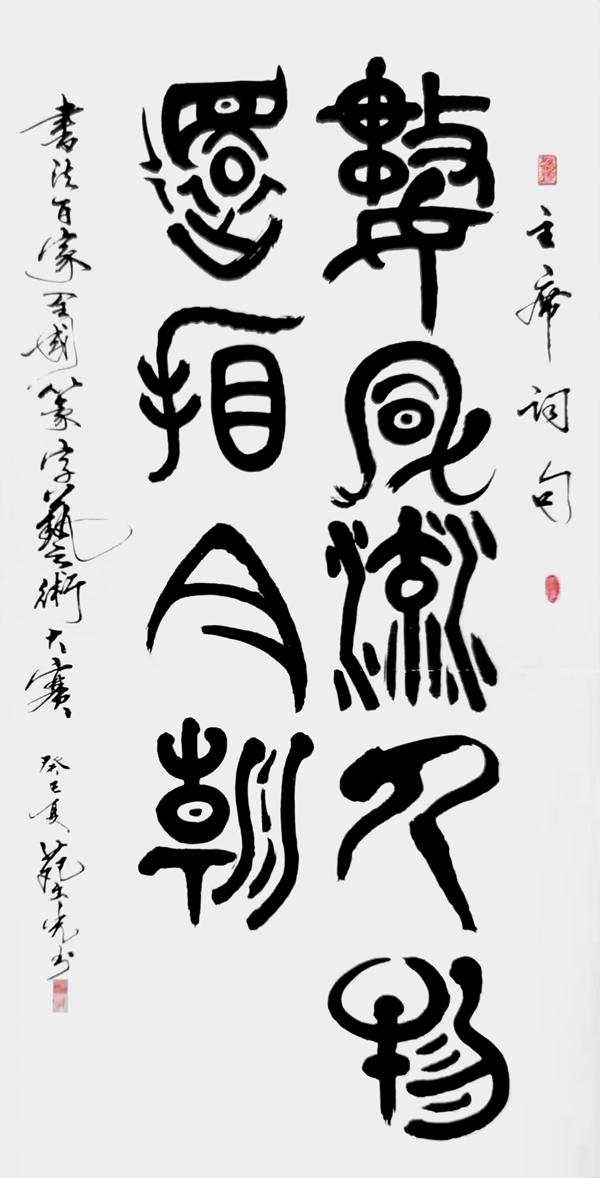 主席詞句
數風流人物
還看今朝
書法百家全國篆字藝術大賽 癸巳夏 文光书